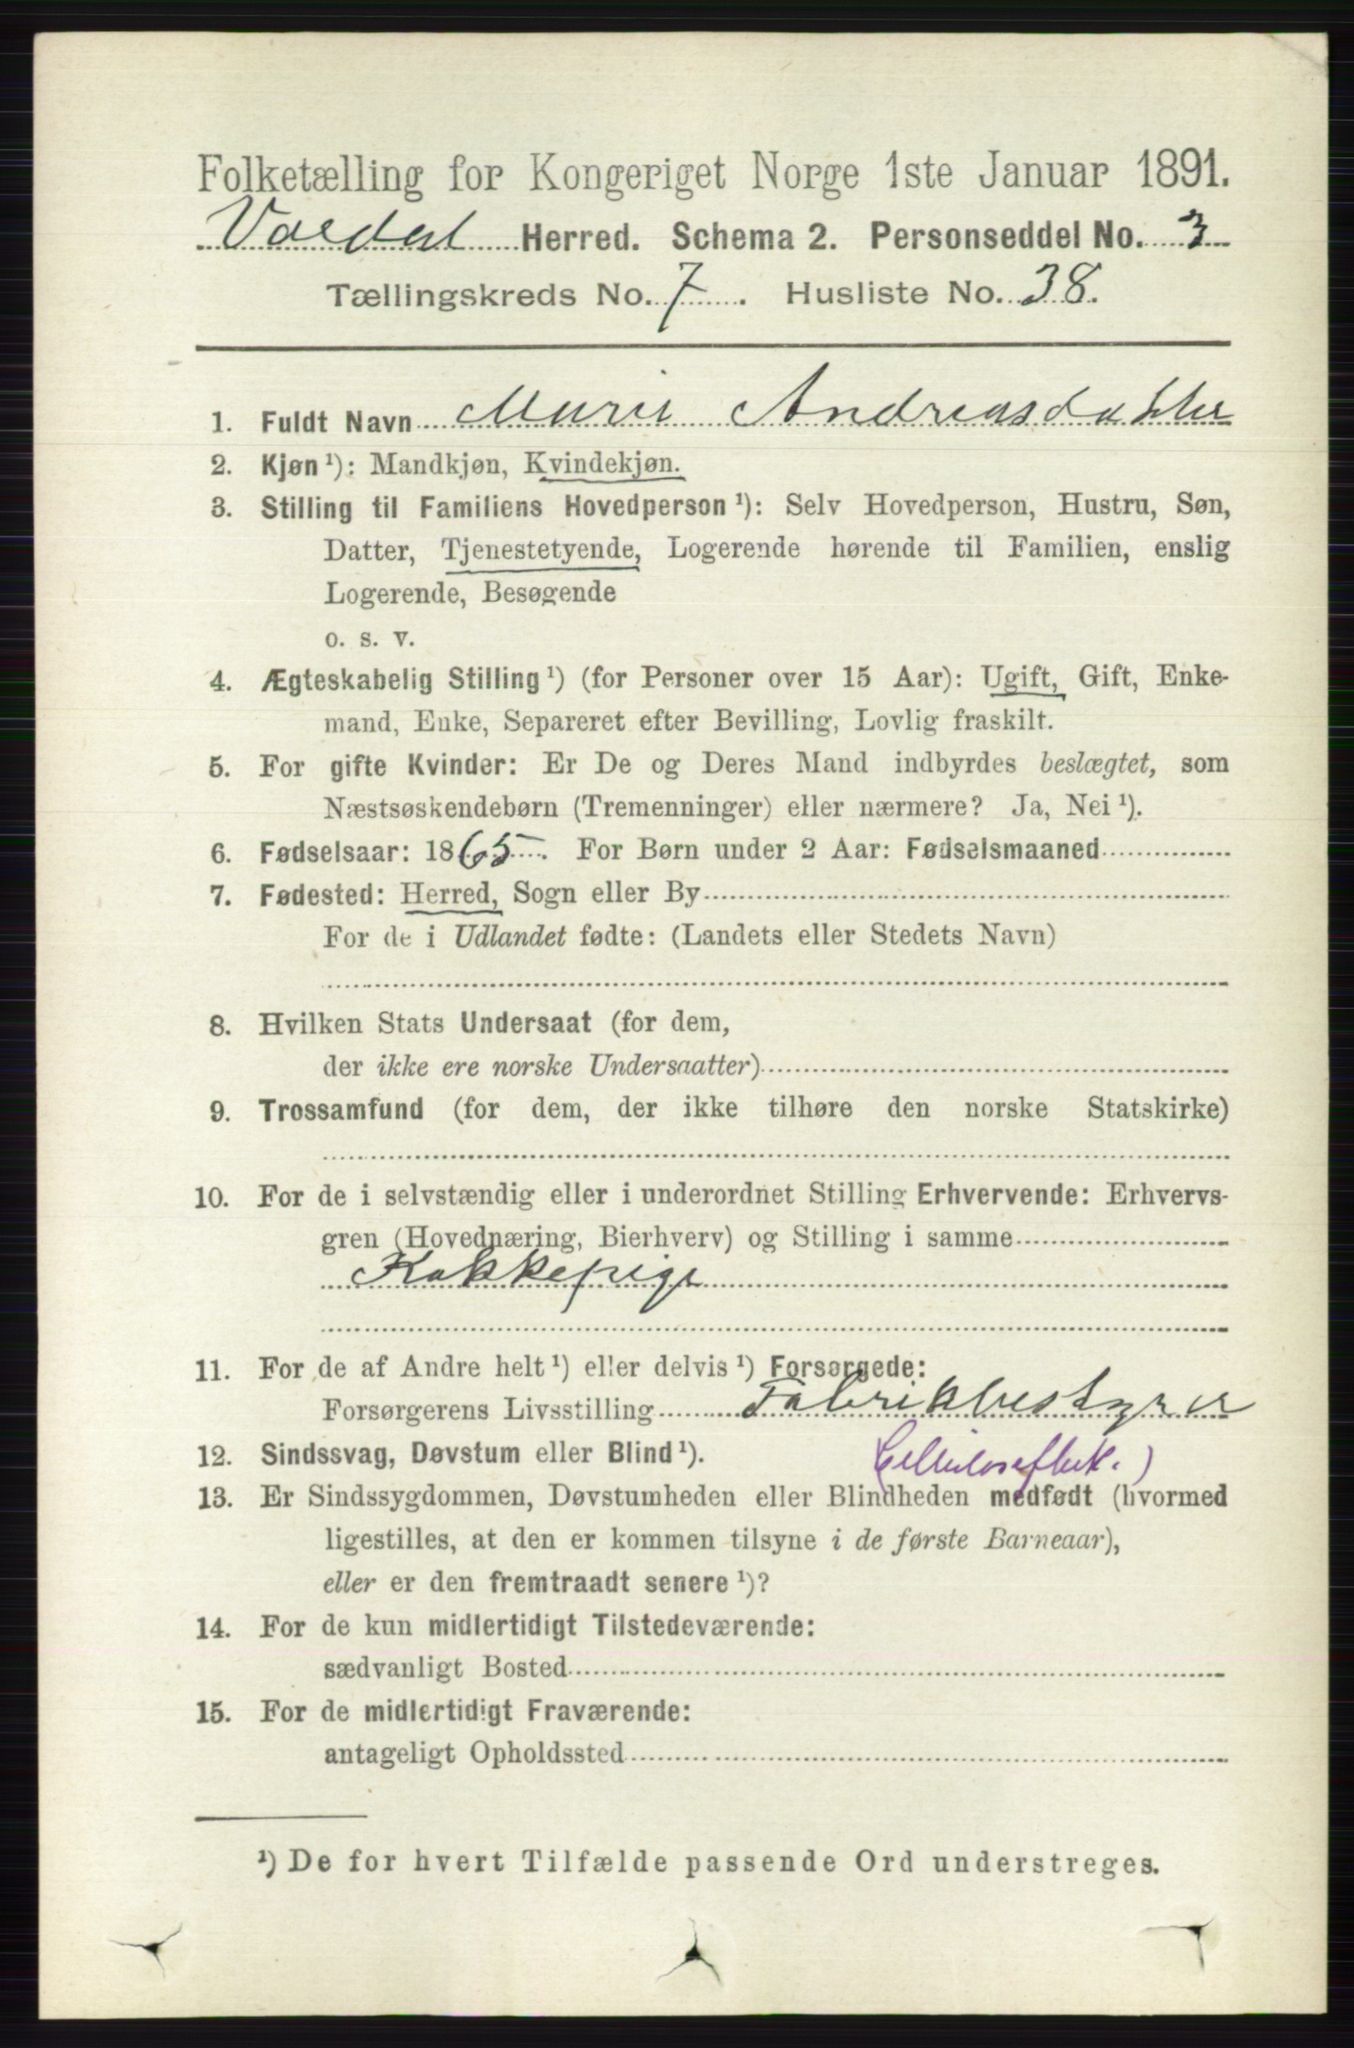 Folketælling for Kongeriget Norge 1ste Januar 1891.
Vardal Herred. Schema 2. Personseddel No. 3
Tællingskreds No. 7. Husliste No. 38.
1. Fuldt Navn Marie Andreasdatter
2. Kjøn ¹): Mandkjøn, Kvindekjøn.
3. Stilling til Familiens Hovedperson ¹): Selv Hovedperson, Hustru, Søn,
Datter, Tjenestetyende, Logerende hørende til Familien, enslig
Logerende, Besøgende
o. s. v.
4. Ægteskabelig Stilling ¹) (for Personer over 15 Aar): Ugift, Gift, Enke-
mand, Enke, Separeret efter Bevilling, Lovlig fraskilt.
5. For gifte Kvinder: Er De og Deres Mand indbyrdes beslægtet, som
Næstsøskendebørn (Tremenninger) eller nærmere? Ja, Nei ¹).
6. Fødselsaar: 1865. For Børn under 2 Aar: Fødselsmaaned
7. Fødested: Herred, Sogn eller By
For de i Udlandet fødte: (Landets eller Stedets Navn)
8. Hvilken Stats Undersaat (for dem,
der ikke ere norske Undersaatter)
9. Trossamfund (for dem, der ikke tilhøre den norske Statskirke)
10. For de i selvstændig eller i underordnet Stilling Erhvervende: Erhvervs-
gren (Hovednæring, Bierhverv) og Stilling i samme
Kokkepige
11. For de af Andre helt ¹) eller delvis ¹) Forsørgede:
Forsørgerens Livsstilling Fabrikbestyrer
12. Sindssvag, Døvstum eller Blind ¹).
13. Er Sindssygdommen, Døvstumheden eller Blindheden medfødt (hvormed
ligestilles, at den er kommen tilsyne i de første Barneaar),
eller er den fremtraadt senere ¹)?
14. For de kun midlertidigt Tilstedeværende:
sædvanligt Bosted
15. For de midlertidigt Fraværende:
antageligt Opholdssted
¹) De for hvert Tilfælde passende Ord understreges.